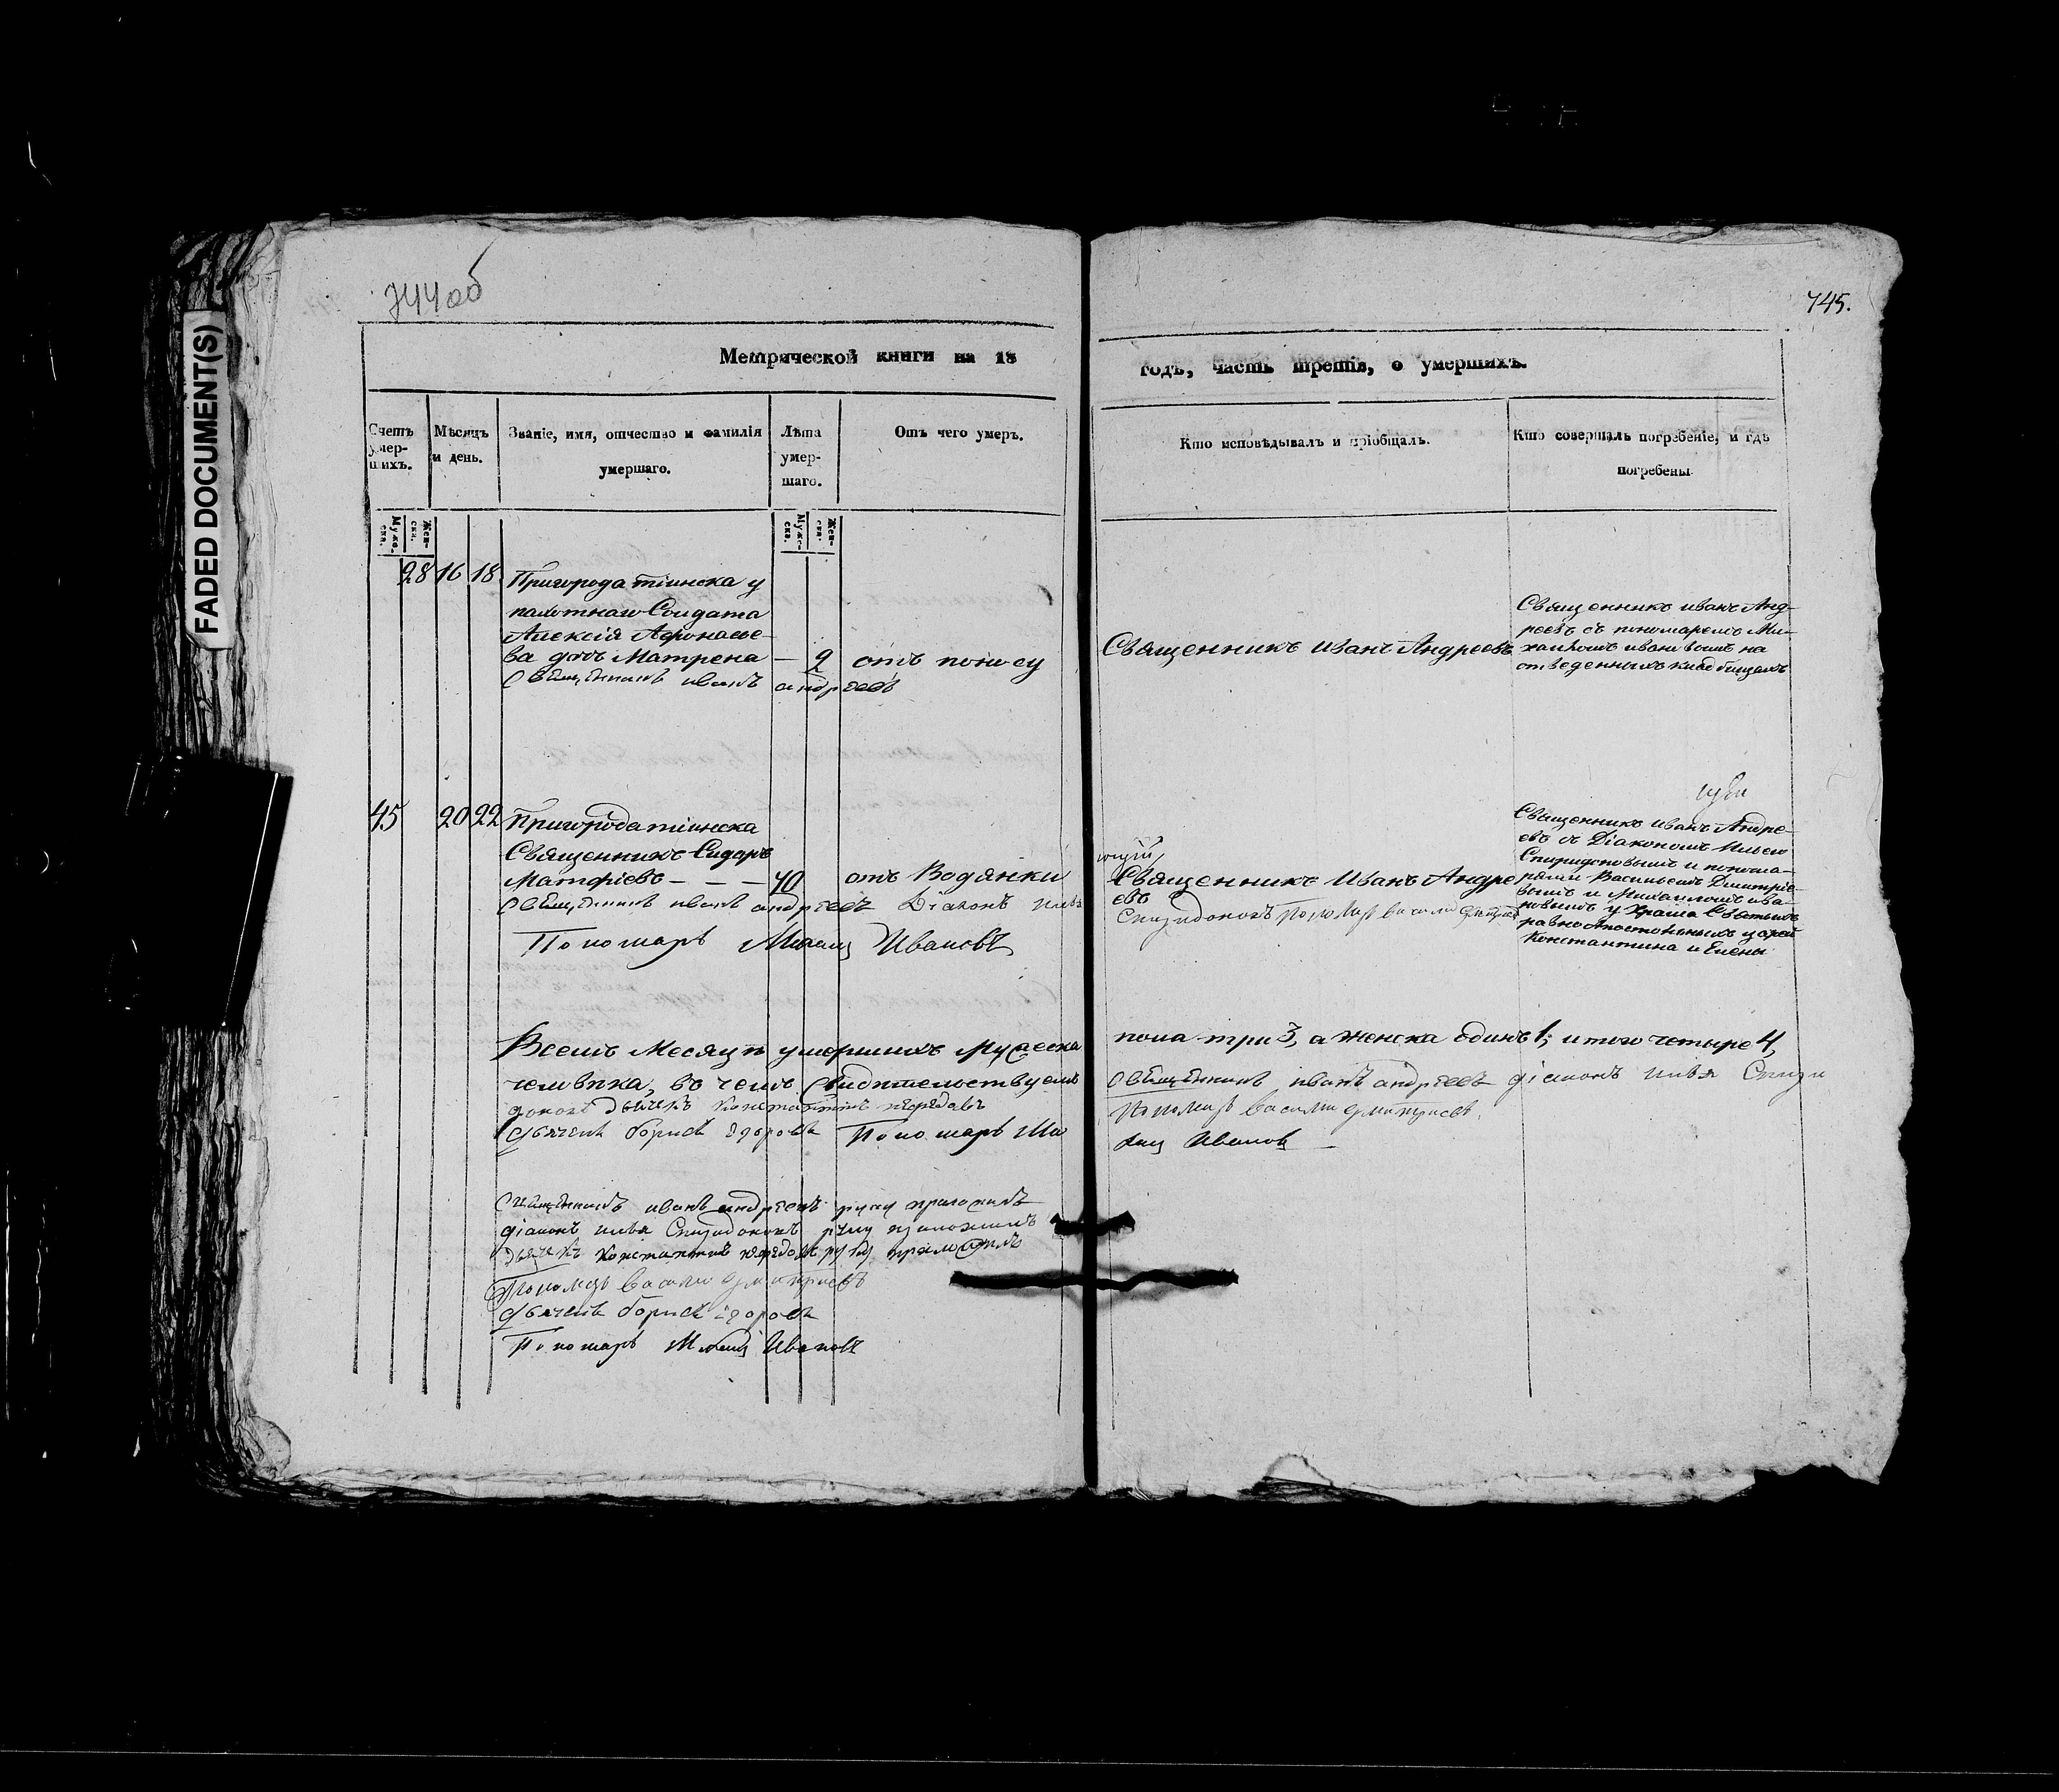 FADED DOCUMENT(S)
744об
745.
Метрической книги на 18
годъ, часть третія, о умершихъ.
Счетъ умер-
шихъ.
Мѣсяцъ
и день.
Званіе, имя, отчество и фамилія
умершаго.
Лѣта
умер-
шаго.
Отъ чего умеръ.
Кто исповѣдывалъ и пріобщалъ.
Кто совершалъ погребеніе, и гдѣ
погребены.
Муже-
ска.
Жен-
ска.
Муже-
ска.
Жен-
ска.
28 16 18
Пригорода тіинска у
пахотнаго Солдата
Алексія Афонасье-
ва дочь Матрена — 2 отъ поносу
Священникъ иванъ андреевъ
Священникъ Иванъ Андреевъ
Священникъ иванъ Анд-
реевъ съ пономаремъ Ми-
хаиломъ ивановымъ на
отведенныхъ кладбищахъ
45 20 22
Пригорода тіинска
Священникъ Сидоръ
Матфіевъ — — — 40 отъ Водянки
Священникъ иванъ андреевъ Діаконъ илья
Пономарь Михаил Ивановъ
Священникъ Иванъ Андре
евъ
Спиридоновъ Пономарь васили дмитриевъ
Священникъ иванъ Андре-
евъ съ Діакономъ Ильею
Спиридоновымъ и понома-
рями Васильемъ Димитріе-
вымъ и Михаиломъ ива-
новымъ у храма Святыхъ
равноапостольныхъ царей
Константина и Елены
Всемъ Месяцѣ умершихъ Мужеска
пола три 3, а женска одинъ 1; итого четыре 4,
человѣка, въ чемъ Свидѣтельствуемъ
Священникъ иванъ андреевъ діаконъ илья Спири
доновъ дьячекъ Константинъ
Пономарь васили дмитриевъ
Дьячекъ борисъ Пономарь Ми
хаил Иванов
Священникъ иванъ андреевъ руку приложилъ
діаконъ илья Спиридоновъ руку приложилъ
дьячекъ Константинъ руку приложилъ
Пономарь васили дмитриевъ
Дьячекъ борисъ
Пономарь Михаил Ивановъ